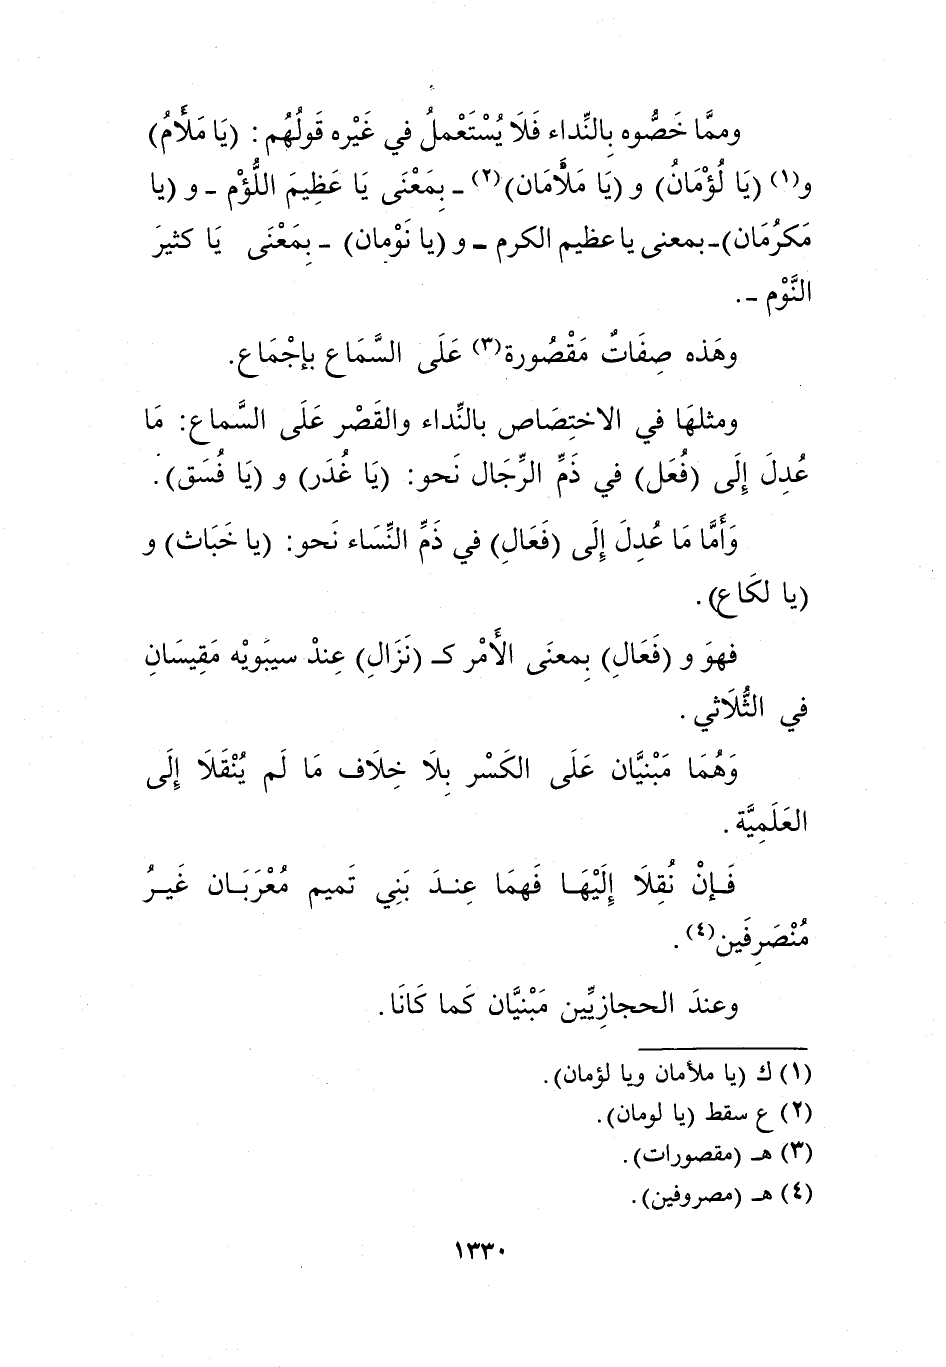 وممَّا خَصُّوه بالنِّداء فَلَا يُسْتَعْملُ في غَيْره قَولُهُم: (يَا مَلْأَمُ)
و(١) (يَا لُؤْمَانُ) و (يَا مَلْأَمَان)(٢) ـ بِمَعْنَى يَا عَظِيمَ اللُّؤْم ـ و (يا
مَكرُمَان)ـ بمعنى يا عظيم الكرم ـ و (يا نَوْمان) ـ بِمَعْنَى يَا كثيرَ
النَّوْم ـ.
وهَذه صِفَاتٌ مَقْصُورة(٣) عَلَى السَّمَاع بإجْمَاع.
ومثلهَا في الاختِصَاص بالنِّداء والقَصْر عَلَى السَّماع: مَا
عُدِلَ إلَى (فُعَل) في ذَمِّ الرِّجَال نَحو: (يَا غُدَر) و (يَا فُسَق).
وَأَمَّا مَا عُدِلَ إلَى (فَعَالِ) في ذَمِّ النِّسَاء نَحو: (يا خَبَاث) و
(يا لكَاع).
فهوَ و (فَعَالِ) بِمعنَى الأَمْر كـ (نَزَالِ) عِندْ سيبَويْه مَقِيسَانِ
في الثُّلَاثي.
وَهُمَا مَبْنيَّان عَلَى الكَسْر بِلَا خِلَاف مَا لَم يُنْقَلَا إلَى
العَلَمِيَّة.
فَإنْ نُقِلَا إلَيْهَا فَهمَا عِندَ بَنِي تَميم مُعْرَبَان غَيرُ
مُنْصَرِفَين(٤).
وعندَ الحجازِيِّين مَبْنيَّان كَما كَانَا.
(١) ك (يا ملأمان ويا لؤمان).
(٢) ع سقط (يا لومان).
(٣) هـ (مقصورات).
(٤) هـ (مصروفين).
١٣٣٠